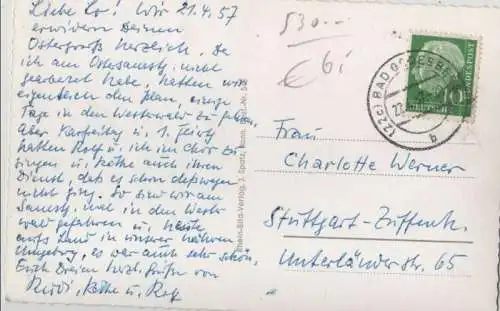 Liebe Lo! Wir 21.4.57
erwidern Deinen
Ostergruß herzlich. Da
ich am Ostersamstg. nicht
gearbeitet habe, hatten wir
eigentlich den Plan, einige
Tage in den Westerwald zu fahren.
Aber Karfreitg u. 1. Feiertg
hatten Rolf u. ich im Chor zu
singen u. Käthe auch ihren
Dienst, daß es schon deswegen
nicht ging. So sind wir am
Samstg. mal in den Wester
wald gefahren u. heute
aufs Land in unserer näheren
Umgebung, es war auch sehr schön.
Euch Dreien herzl. Grüße von
Käthe u. Rolf
Rhein-Bild-Verlag, J. Spatz, Bonn
530.--
€ 6i
(22c) BAD GODESBE
22.
b
10
DEUTSCHE BUNDESPOST
Frau
Charlotte Werner
Stuttgart-Zuffenh.
Unterländerstr. 65